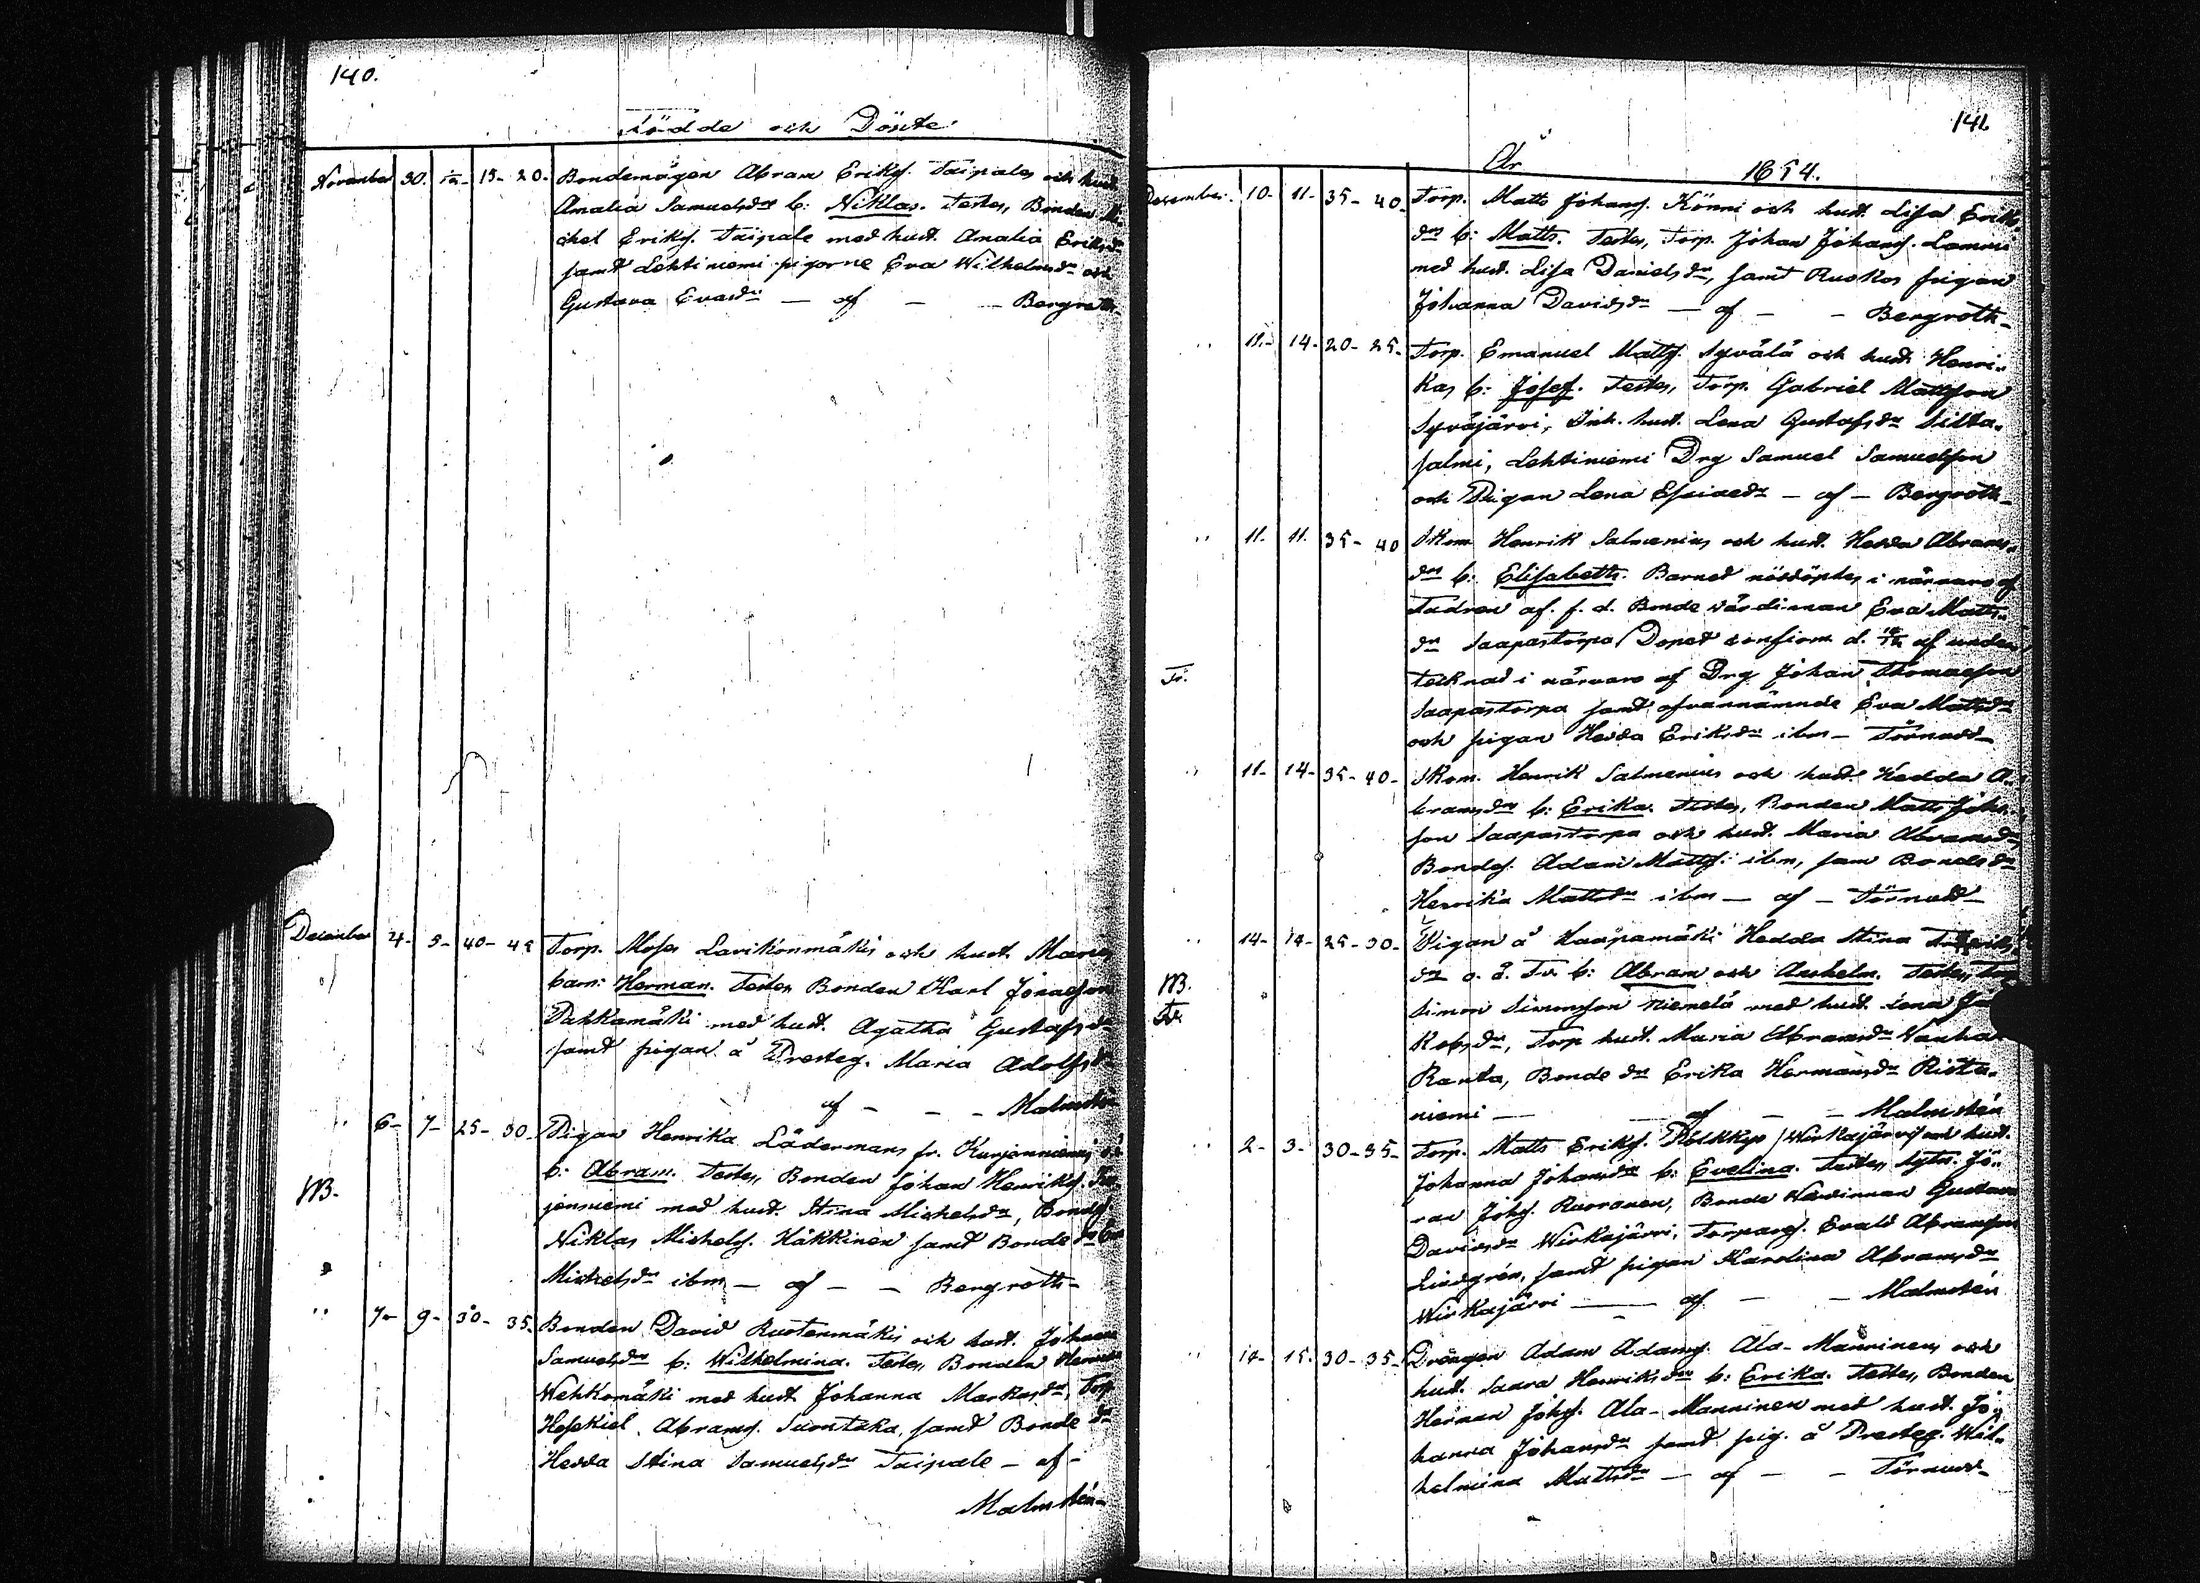 140.
Födde och Döpte
November 30. 3/12 - 15 - 20 - Bondemågen Abram Eriks. Taipales och hust.
Amalia Samuelsdrs b: Niklas. Testes, Bonden Mi-
chel Eriks. Taipale med hust. Amalia Eriksdr
samt Lehtiniemi pigorne Eva Wilhelmsdr och
Gustava Evasdr — af — — Bergroth
December 4 - 5 - 40 - 45 Torp. Moses Lavikonmäkis och hust. Marias
barn: Herman. Testes Bonden Karl Jonasson
Pahkamäki med hust. Agatha Gustafsdr
samt pigan å Presteg. Maria Adolfsdr
af — — — Malmstén
" 6 - 7 - 25 - 30 - Pigan Henrika Lädermans fr. Kurjenniemi
NB. b: Abram. Testes, Bonden Johan Henriks. Kur-
jenniemi med hust. Stina Michelsdr, Bondes.
Niklas Michels. Häkkinen samt Bonde dr
Michelsdr ibm — af — — Bergroth -
" 7 - 9 - 30 - 35. Bonden David Rustenmäkis och hust. Johanna
Samuelsdrs b: Wilhelmina. Testes, Bonden Herman
Wehkomäki med hust. Johanna Markusdr, Torp.
Hesekiel Abrams. Suontaka, samt Bonde dr
Hedda Stina Samuelsdr Taipale — af -
Malmstén -
141.
År 1854.
December. 10 - 11 - 35 - 40 - Torp. Matts Johans. Könni och hust. Lisa Eriks-
drs b: Matts. Testes, Torp. Johan Johans. Lammi
med hust. Lisa Danielsdr, samt Ruokos pigan
Johanna Davidsdr — af — — Bergroth -
" 11 - 14 - 20 - 25 - Torp. Emanuel Matts. Syvälä och hust. Henri-
kas b: Josef. Testes, Torp. Gabriel Mattsson
Syväjärvi, Inh. hust. Lena Gustafsdr Silta-
salmi, Lehtiniemi Drg Samuel Samuelsson
och Pigan Lena Esaiaedr — af — Bergroth -
" 11 - 11. 35 - 40 Skom. Henrik Salmenius och hust. Hedda Abrams-
drs b: Elisabeth. Barnet nöddöptes i närvaro af
Fadren af f. d. Bonde värdinnan Eva Matts-
dr Saapastorpa. Dopet confirm. d. 12/12 af under-
Tv. tecknad i närvaro af Drg Johan Thomasson
Saapastorpa samt ofvannämnde Eva Mattsdr
och pigan Hedda Eriksdr ibm — Törnudd -
" 11 - 14 - 35 - 40 - Skom. Henrik Salmenius och hust. Hedda A-
bramsdrs b: Erika. Testes, Bonden Matts Johs-
son Saapastorpa och hust. Maria Abramsdr,
Bondes. Adam Matts. ibm, sam Bondedr
Henrika Mattsdr ibm — af — Törnudd -
" 14 - 14 - 25 - 30 - Pigan å Haapamäki Hedda Stina
NB. dr o. ä. Tv. b: Abram och Anshelm. Testes, Torp
Tv. Simon Simonsson Niemelä med hust. Lena Ja-
kobsdr, Torp. hust. Maria Abramsdr Wanha-
Ranta, Bonde dr Erika Hermansdr Rista-
niemi — af — — Malmstén
" 2 - 3 - 30 - 35 - Torp. Matts Eriks. Pölkkys / Wirkajärvi och hust.
Johanna Johansdrs b: Evelina. Testes, Sytn. Jö-
ran Johs. Ruoranen, Bonde Wärdinnan Gustava
Davidsdr Wirkajärvi, Torpares. Evald Abramsson
Lindgrén, samt pigan Karolina Abramsdr
Wirkajärvi — af — — Malmstén
" 14 - 15. 30 - 35 - Drängen Adam Adams. Ala-Manninens och
hust. Saara Henriksdrs b: Erika. Testes, Bonden
Herman Johs. Ala-Manninen med hust. Jo-
hanna Johansdr samt pig. å Presteg. Wil-
helmina Mattsdr — af — — Törnudd -